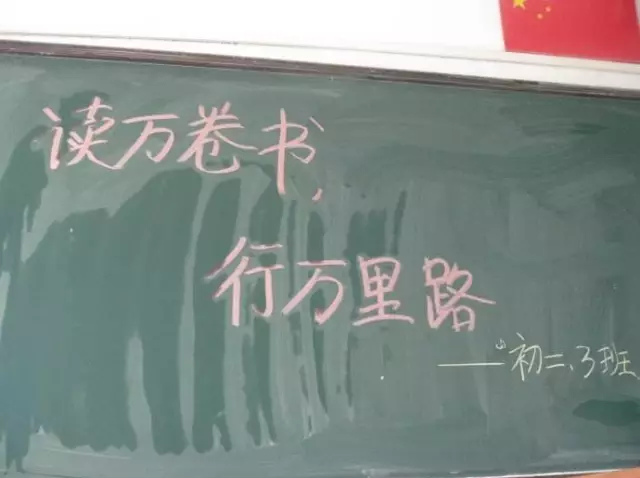 读万卷书,
行万里路
——初二、3班